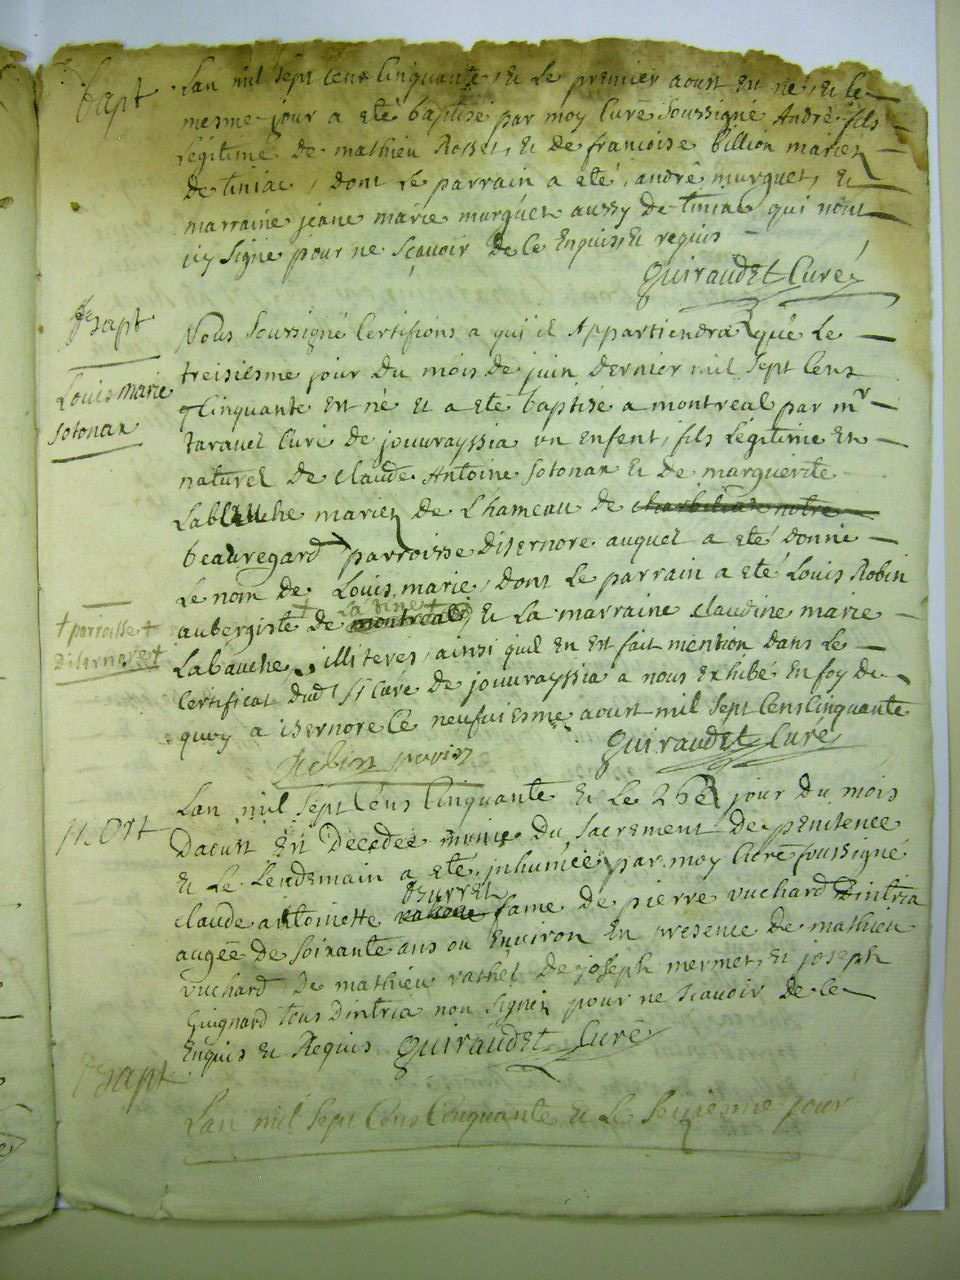 bapt
Lan mil sept cens Cinquante, et Le premier aoust est né, et le
mesme jour a eté baptisé par moy Curé soussigné André fils
Légitime de mathieu Rosset, et de francoise billion mariez
de tiniac, dont Le parrain a eté, andré murguet, et
marraine jeane marie murguet aussy de tiniac qui nont
icy signé pour ne sçavoir de ce Enquis, Et requis
Guiraudet Curé
bapt
Louis marie
sotonax
Nous soussigné Certifions a qui il Appartiendra que Le
treisiesme jour du mois de juin dernier mil sept Cens
Cinquante est né et a eté baptise a montreal par mr
taravel Curé de jouvrayssia un enfent, fils Légitime et
naturel de claude Antoine sotonax et de marguerite
Labauche mariez de Lhameau de
beauregard parroisse disernore auquel a eté donné
Le nom de Louis marie, dont Le parrain a eté Louis Robin
+ parroisse +
disernore +
aubergiste de + La vine + montreal et La marraine claudine marie
Labauche, illiteres, ainsi quil en est fait mention dans Le
Certificat dud sr Curé de jouvrayssia a nous exhibé En foy de
quoy a isernore Le neufuiesme aoust mil sept Cens Cinquante
Guiraudet Curé
Mort
Lan mil sept Cens Cinquante et Le 26e jour du mois
Daoust est Decedée munie du sacrement de penitence
et Le Lendemain a eté inhumée par moy Curé soussigné
claude antoinette burret fame de pierre vuchard Dintria
augée de soixante ans ou Environ En presence de mathieu
vuchard de mathieu rathel de joseph mermet, et joseph
Guignard tous Dintria non signez pour ne scavoir de ce
Enquis et Requis Guiraudet Curé
bapt
Lan mil sept Cens Cinquante et Le seizieme jour